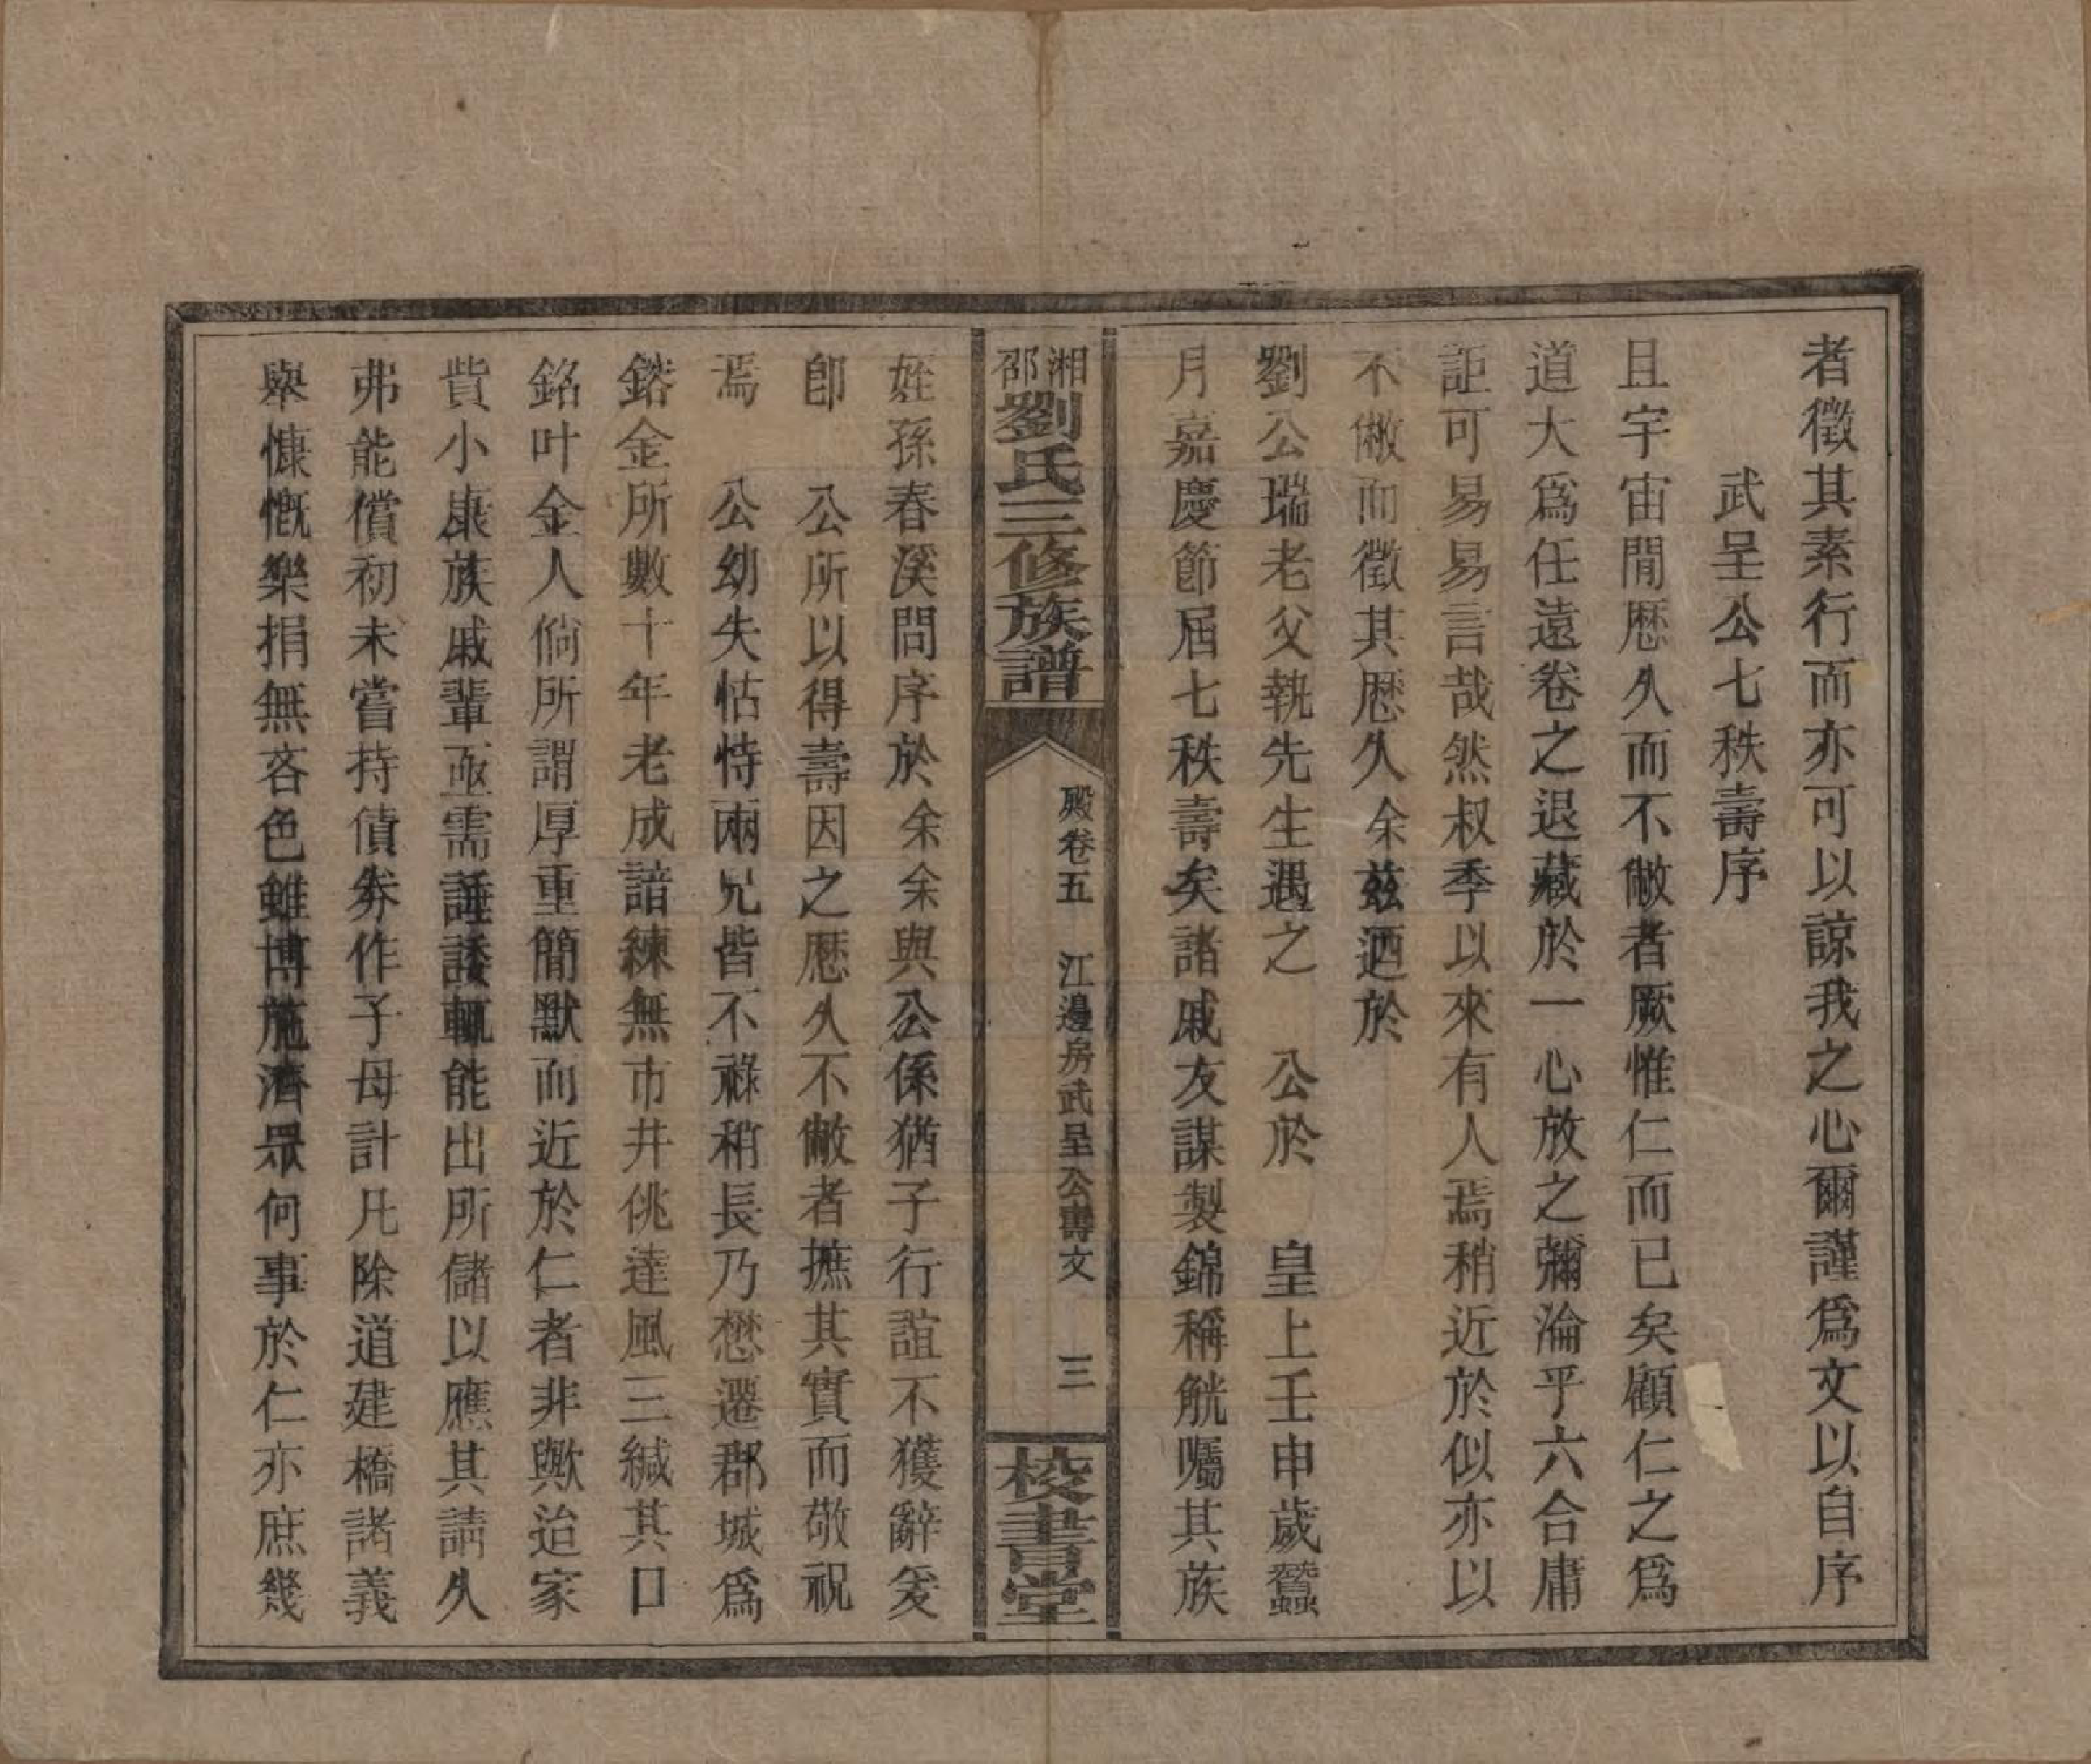 者徵其素行而亦可以諒我之心爾謹爲文以自序
武呈公七秩壽序
且宇宙閒歷久而不敝者厥惟仁而已矣顧仁之爲
道大爲任遠卷之退藏於一心放之彌淪乎六合庸
詎可易易言哉然叔季以來有人焉稍近於似亦以
不敝而徵其歷久余茲迺於
劉公瑞老父執先生遇之　公於　皇上壬申歲蠶
月嘉慶節届七秩壽矣諸戚友謀製錦稱觥囑其族
湘邵劉氏三修族譜
殿卷五　江邊房武呈公壽文　三
校書堂
姪孫春溪問序於余余與公係猶子行誼不獲辭爰
卽　公所以得壽因之歷久不敝者摭其實而敬祝
焉　公幼失怙恃兩兄皆不祿稍長乃懋遷郡城爲
鎔金所數十年老成諳練無市井佻達風三緘其口
銘叶金人倘所謂厚重簡默而近於仁者非歟迨家
貲小康族戚輩亟需諈諉輒能出所儲以應其請久
弗能償初未嘗持債券作子母計凡除道建橋諸義
舉慷慨樂捐無吝色雖博施濟眾何事於仁亦庶幾